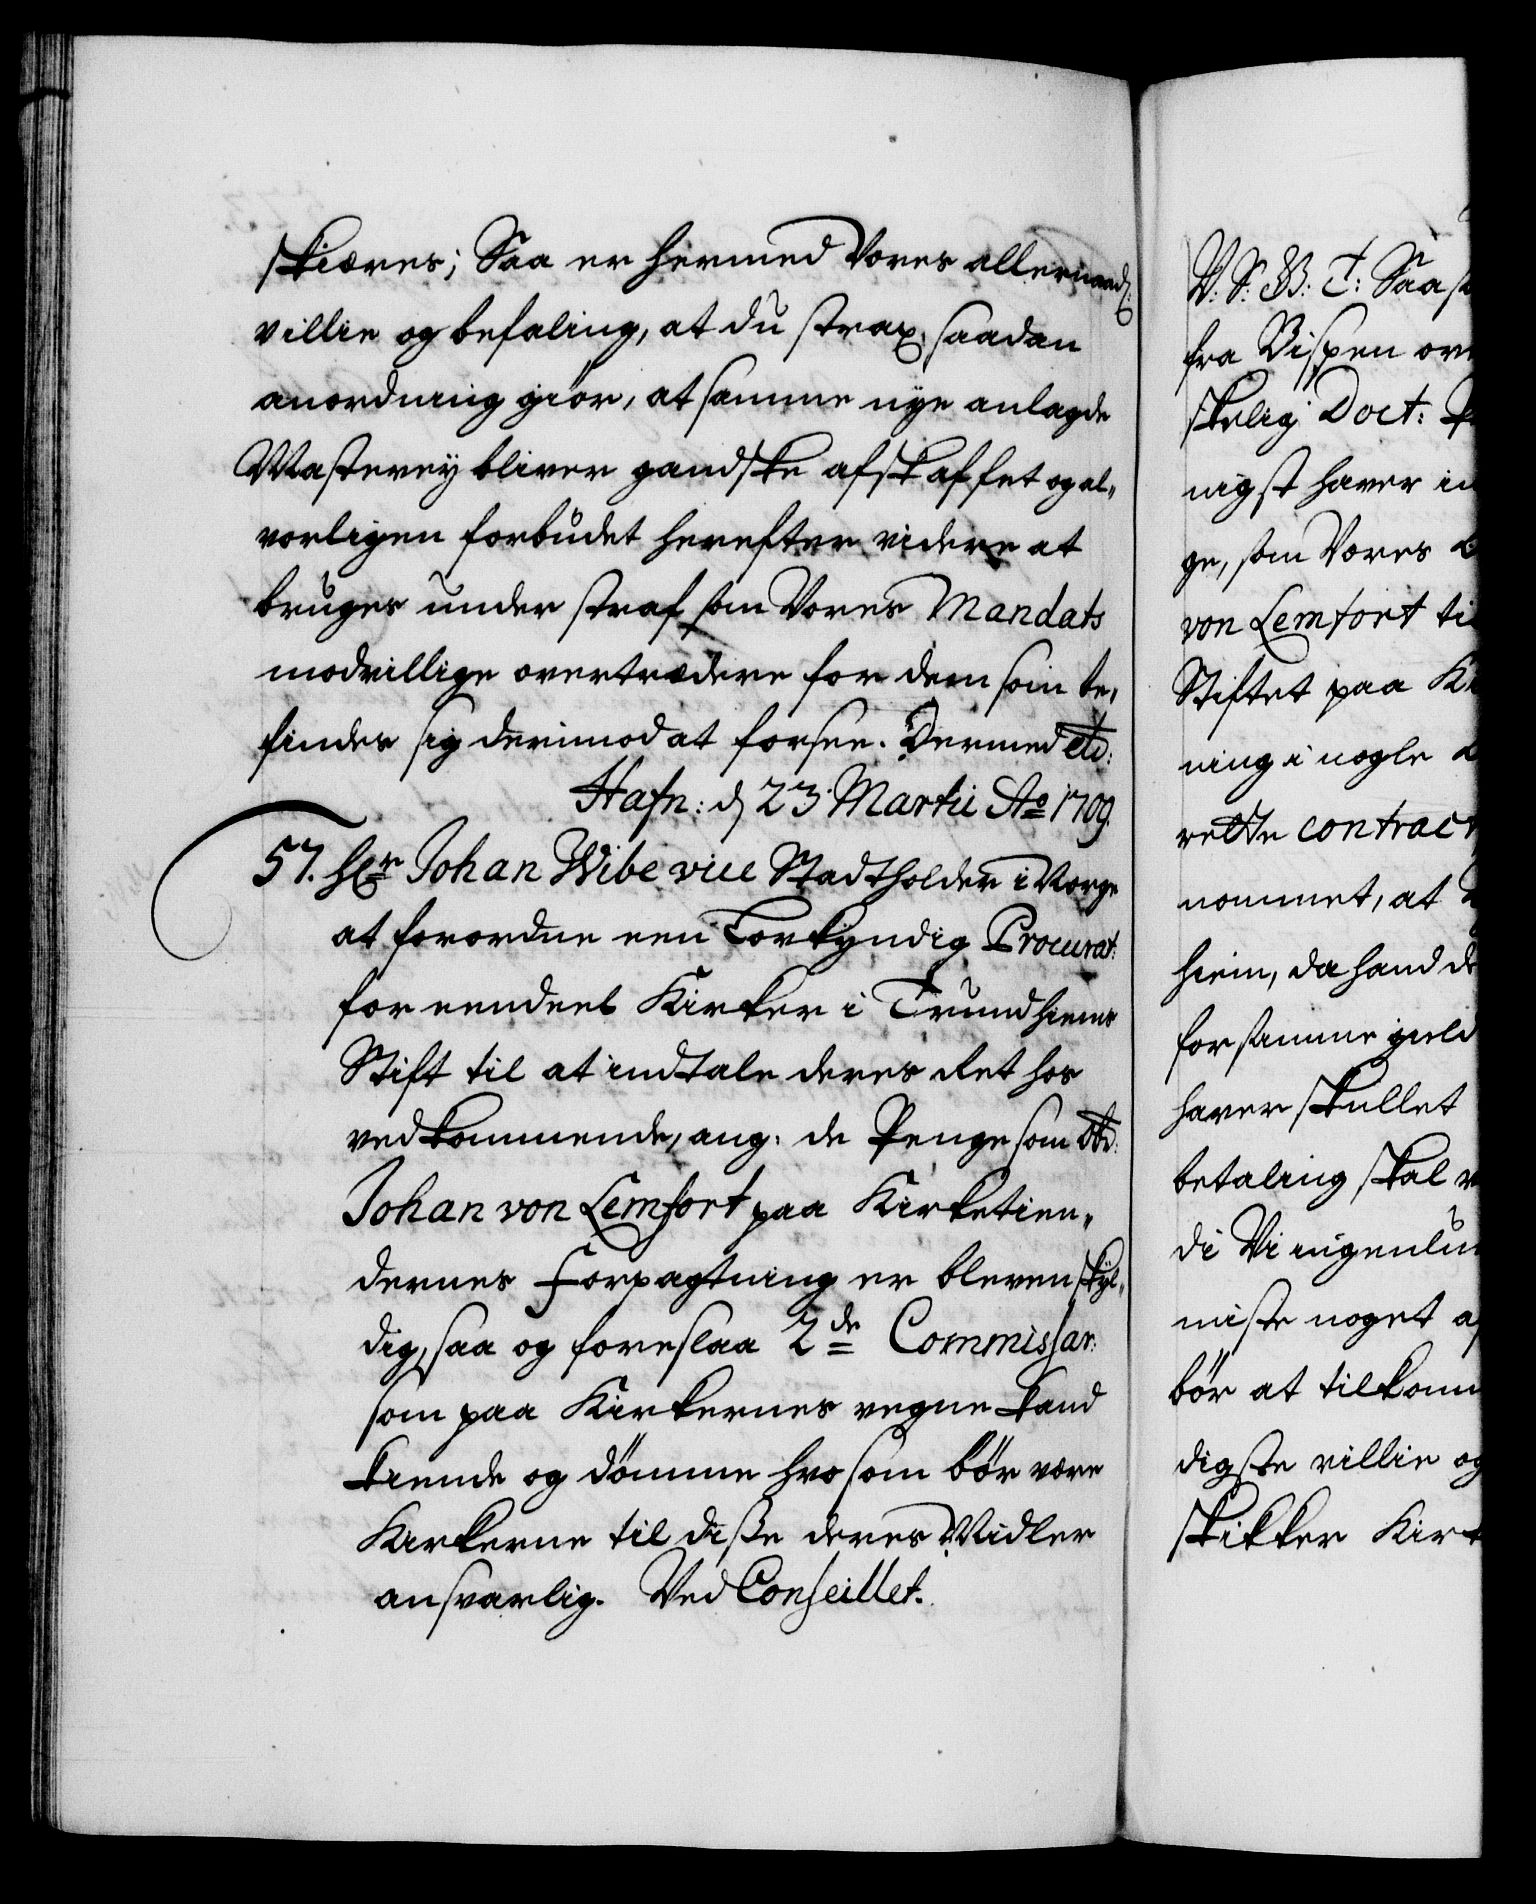 skiæres; Saa er hermed Vores allernaad:
villie og befaling, at du strax saadan
anordning giör, at samme nye anlagde
Masterey bliver gandske afskaffet og al-
vorligen forbudet herefter videre at
bruges under straf som Vores Mandats
modvillige overtrædere for dem som be-
findes sig derimod at forsee. Dermed etc:
Hafn: d 23 Martii Ao 1709.
57. Hr Johan Wibe vice Stadtholder i Norge
at forordne een Lovkyndig Procurat:
for eendeel Kirker i Trundhiems
Stift til at indtale deres Ret hos
vedkommende, ang: de Penge som
Johan von Lemfort paa Kirketien-
dernes Forpagtning er bleven skyl-
dig, saa og foreslaa 2de Commissar:
som paa Kirkernes vegne kand
kiende og dömme hvo som bör være
Kirkerne til disse deres Midler
ansvarlig. Ved Conseillet.
V: S: G: T: Saa s
fra Bispen ov
skelig Doct: P
nigst haver in
ge, som Vores
von Lemfort ti
Stiftet paa K
ning i nogle
rette contrac
nommet, at
hiem, da hand d
for samme gield
haver skullet
betaling skal v
di Vi ingenlu
miste noget a
bör at tilkom
digste villie og
skikker Kirk